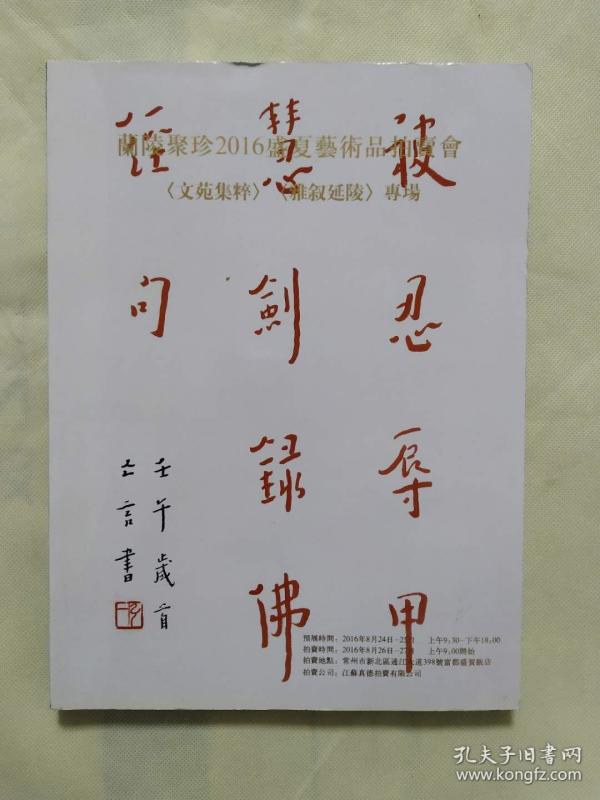 蘭陵聚珍2016盛夏藝術品拍賣會
〈文苑集粹〉〈雅叙延陵〉專場
被忍辱甲
慧劍錄佛
經句
壬午歲首
亡言書
預展時間：2016年8月24日-25日 上午9:30-下午18:00
拍賣時間：2016年8月26日-27日 上午9:00開始
拍賣地點：常州市新北區通江大道398號富都盛賀飯店
拍賣公司：江蘇真德拍賣有限公司
孔夫子旧书网
www.kongfz.com